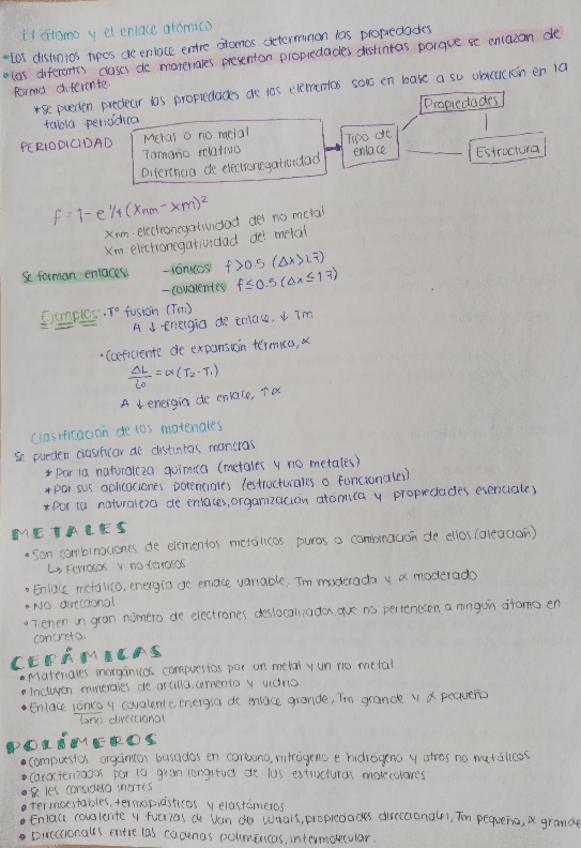 El átomo y el enlace atómico
-Los distintos tipos de enlace entre átomos determinan las propiedades
•Las diferentes clases de materiales presentan propiedades distintas porque se enlazan de
forma diferente.
*Se pueden predecir las propiedades de los elementos solo en base a su ubicación en la
tabla periódica
Propiedades
PERIODICIDAD
Metal o no metal
Tamaño relativo
Diferencia de electronegatividad
Tipo de
enlace
Estructura
f = 1 - e 1/4 (Xnm - Xm)²
Xnm: electronegatividad del no metal
Xm electronegatividad del metal
Se forman enlaces
-iónicos f>0.5 (Δx>1.7)
-covalentes f≤0.5 (Δx≤1.7)
Ejemplos: •Tº fusión (Tm)
A ↓ energía de enlace, ↓ Tm
•Coeficiente de expansión térmica, α
ΔL/L0 = α(T2-T1)
A ↓ energía de enlace, ↑α
Clasificación de los materiales
Se pueden clasificar de distintas maneras
*Por la naturaleza química (metales y no metales)
*por sus aplicaciones potenciales (estructurales o funcionales)
*Por la naturaleza de enlaces, organización atómica y propiedades esenciales
METALES
•Son combinaciones de elementos metálicos puros o combinación de ellos (aleación)
↳ Ferrosos y no ferrosos
•Enlace metálico, energía de enlace variable, Tm moderada y α moderado
•No direccional
•Tienen un gran número de electrones deslocalizados, que no pertenecen a ningún átomo en
concreto.
CERÁMICAS
•Materiales inorgánicos compuestos por un metal y un no metal
•Incluyen minerales de arcilla, cemento y vidrio
•Enlace iónico y covalente, energía de enlace grande, Tm grande y α pequeño
no direccional
POLÍMEROS
•compuestos orgánicos basados en carbono, nitrógeno e hidrógeno y otros no metálicos
•caracterizados por la gran longitud de las estructuras moleculares
•Se les considera inertes
•termoestables, termoplásticos y elastómeros
•Enlace covalente y fuerzas de Van de Waals, propiedades direccionales, Tm pequeña, α grande
•Direccionales entre las cadenas poliméricas, intermolecular.